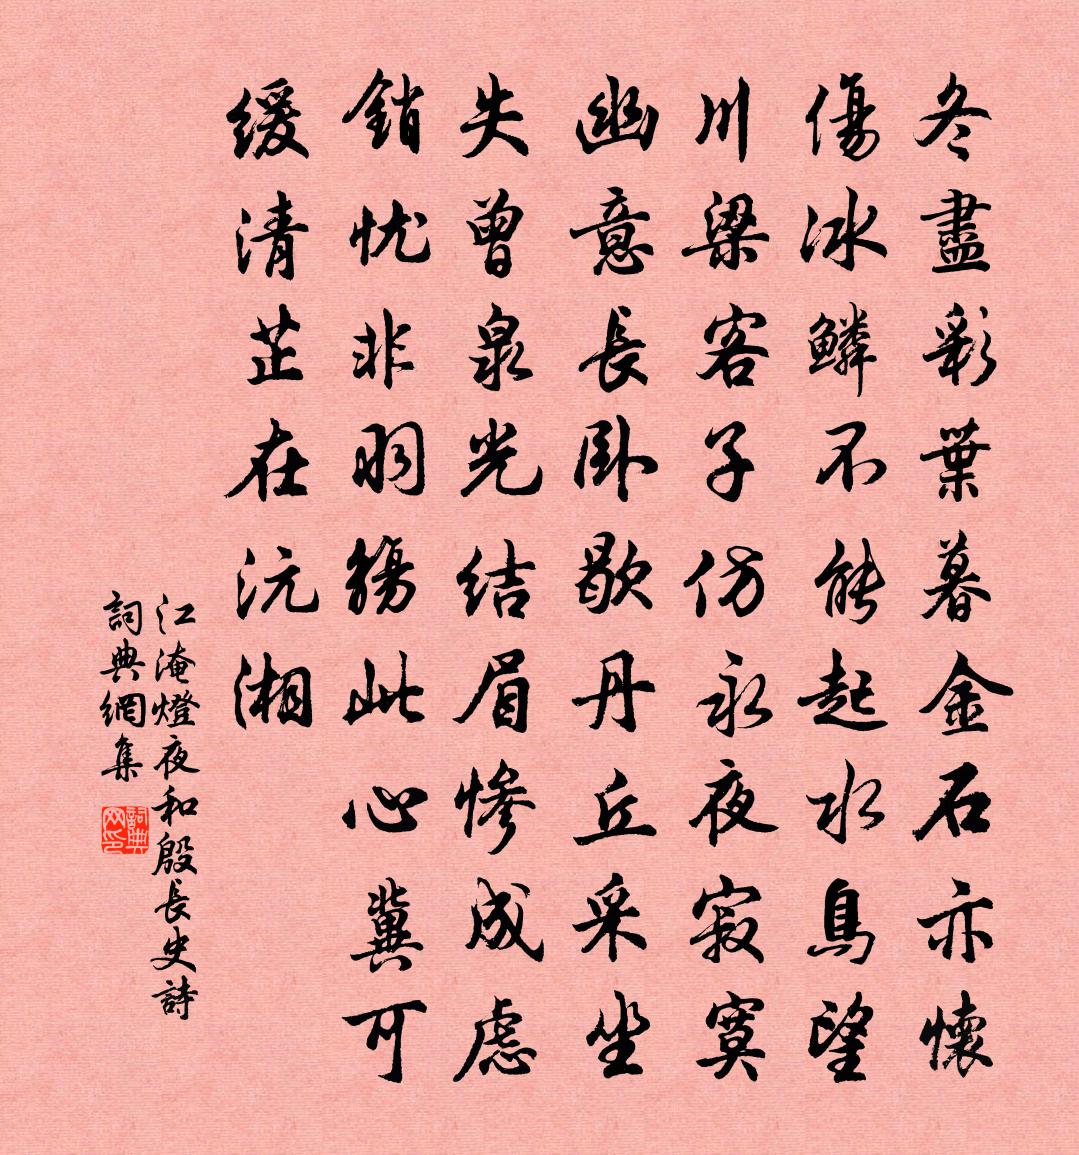 冬盡彩葉暮金石亦懷
傷冰鱗不能起水鳥望
川梁客子仿永夜寂寞
幽意長卧歇丹丘采坐
失曾泉光結眉慘成慮
銷忧非羽觴此心冀可
缓清芷在沅湘
江淹燈夜和殷長史詩
詞典網集
詞典网印